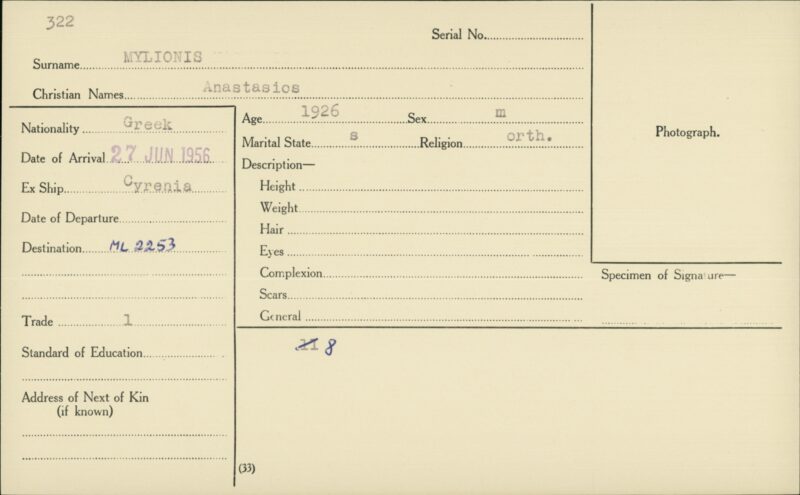 322
Serial No.
Surname MYLIONIS
Christian Names Anastasios
Nationality Greek
Date of Arrival 27 JUN 1956
Ex Ship Cyrenia
Date of Departure
Destination ML 2253
Trade 1
Standard of Education
Address of Next of Kin
(if known)
Age 1926 Sex m
Marital State s Religion orth.
Description—
Height
Weight
Hair
Eyes
Complexion
Scars
General
11 8
(33)
Photograph.
Specimen of Signature—